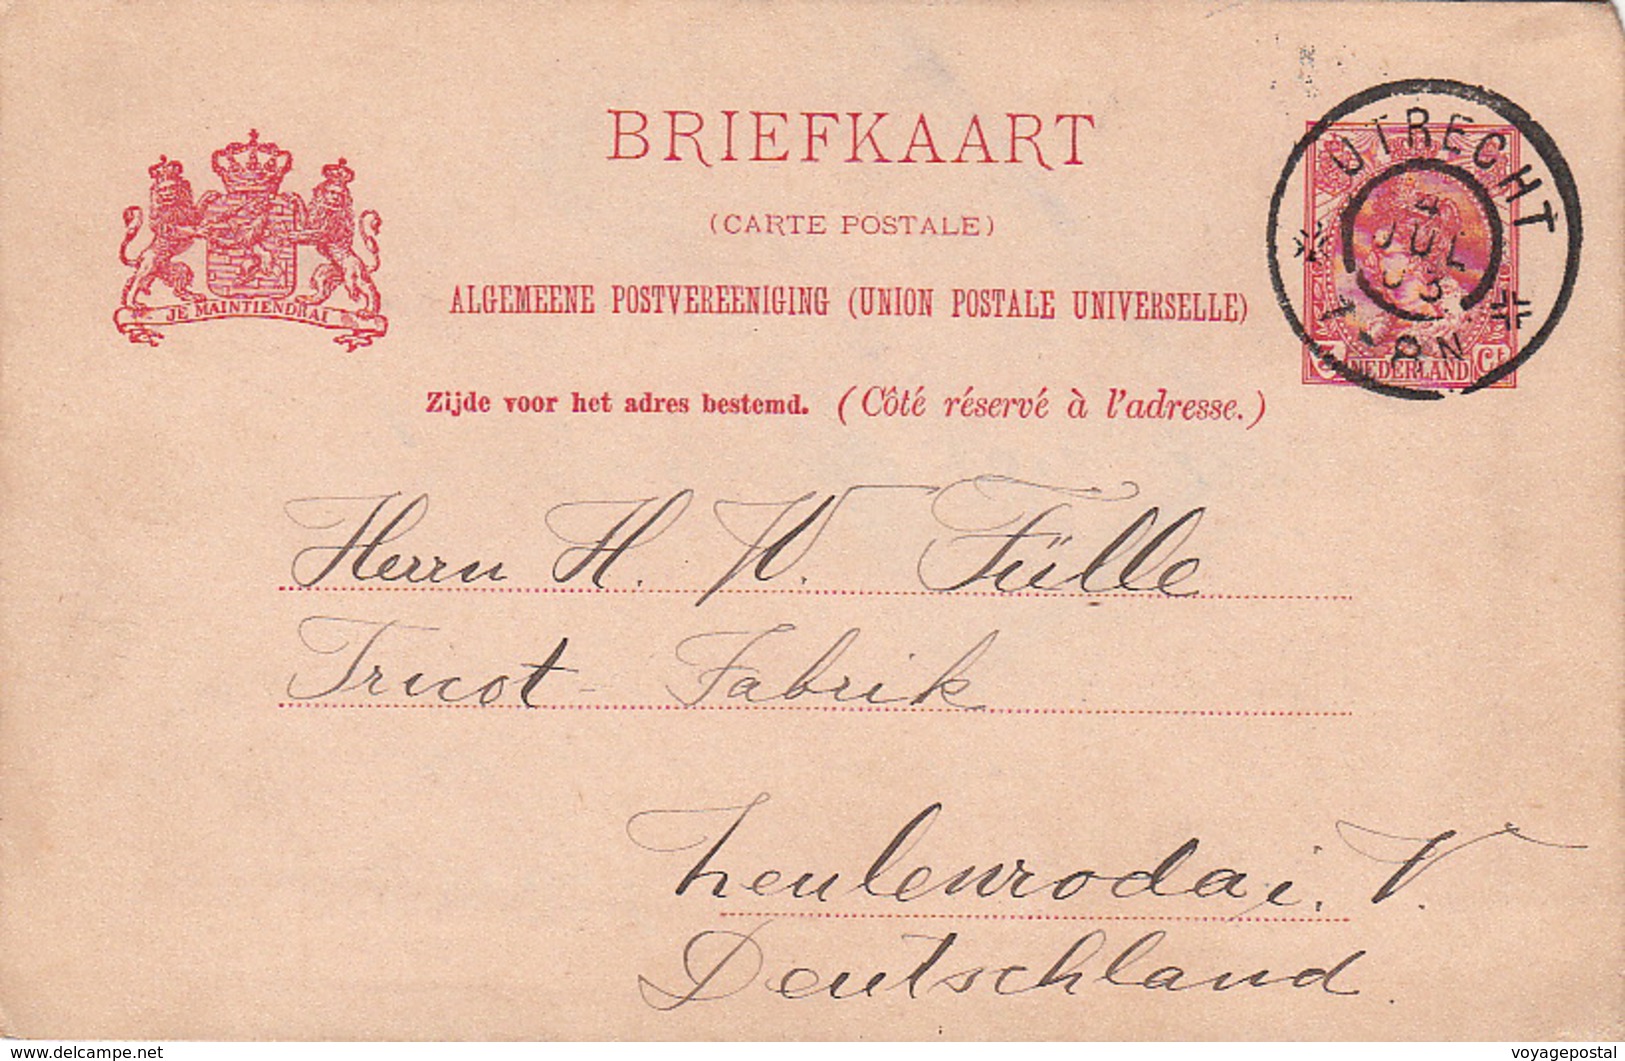 BRIEFKAART
(CARTE POSTALE)
ALGEMEENE POSTVEREENIGING (UNION POSTALE UNIVERSELLE)
Zijde voor het adres bestemd. (Côté réservé à l'adresse.)
JE MAINTIENDRAI
UTRECHT
4
JUL
03
7-8N
NEDERLAND
Ct
Herrn H. W. Fülle
Tricot-Fabrik
Zeulenroda i. V.
Deutschland.
www.delcampe.net
voyagepostal